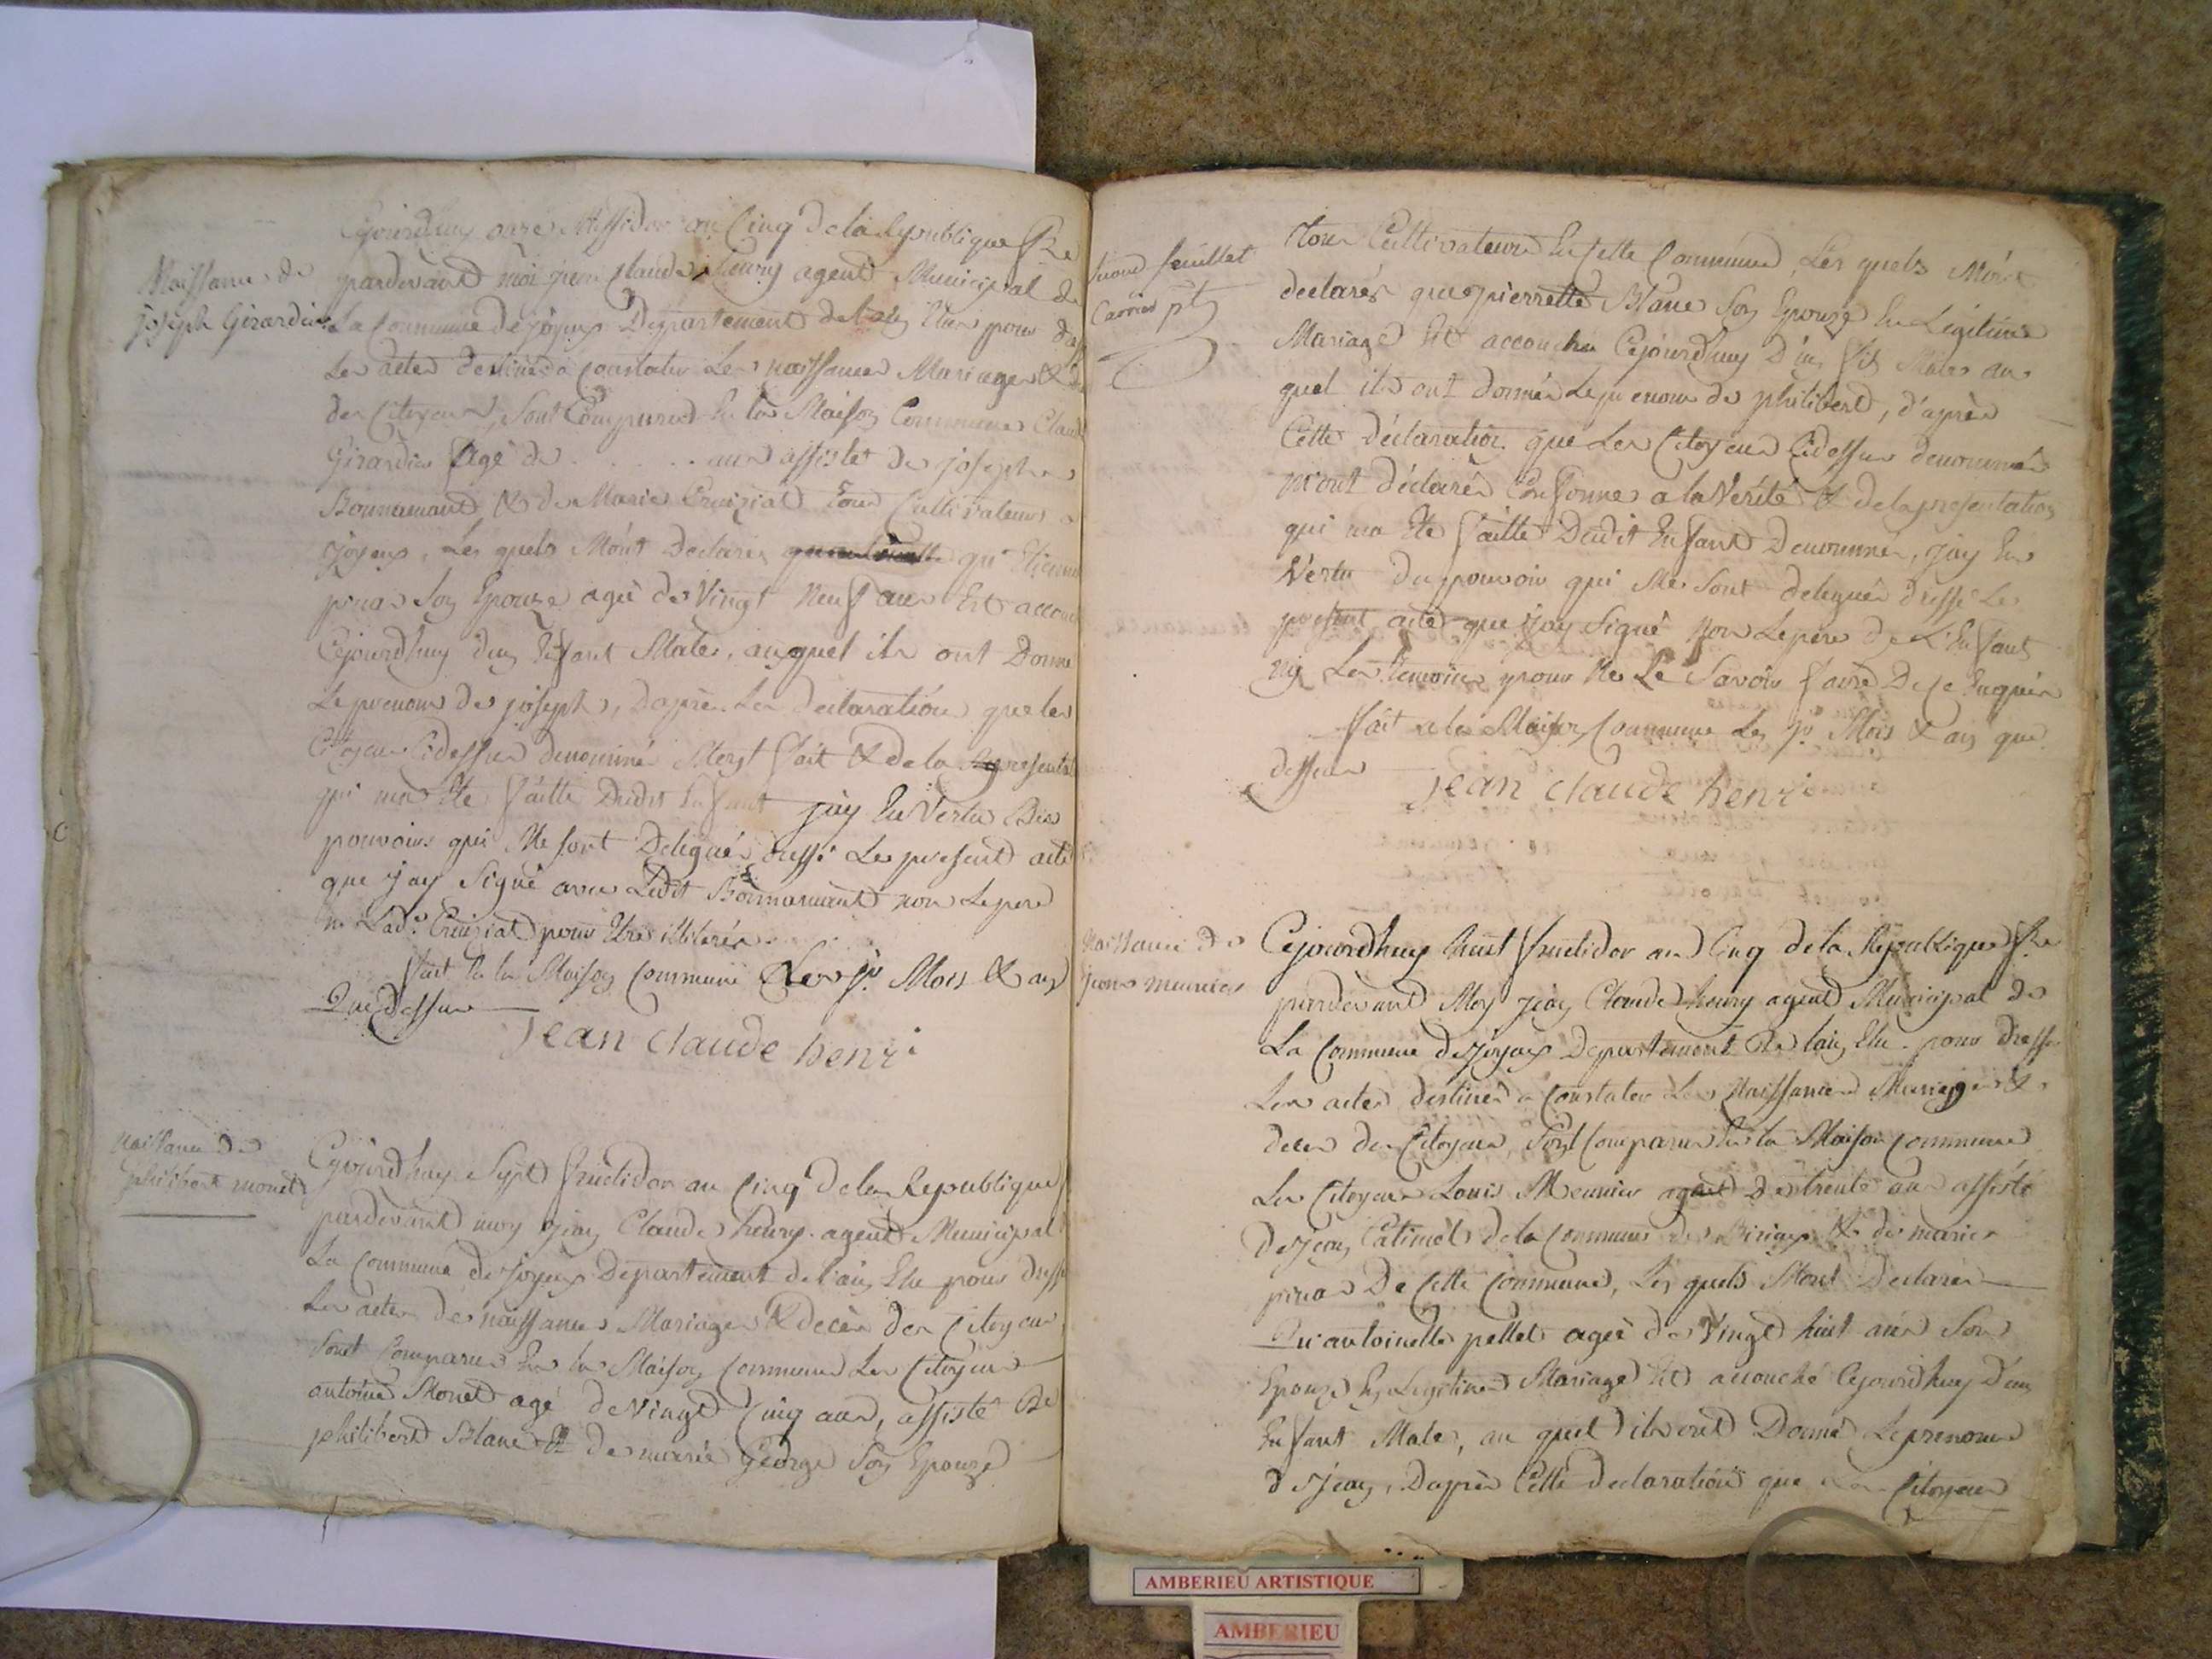 Naissance de
joseph Girardin
Cejourdhuy onze Messidor an Cinq de la Republique fse
pardevant moi jean claude henry agent Municipal de
La Commune de joyeux Departement de lain Elu pour
Les actes destinés a Constater Les naissances Mariages &
des Citoyens, Sont Comparus En la Maison Commune
Girardin agé de . . . . . ans assisté de joseph
Bonnamant & de Marie Cruiziat tous Cultivateurs a
joyeux, Les quels M'ont Declarés qu'
son Epouze ageé de Vingt Neuf ans Est
Cejourdhuy d'un Enfant Male, auquel ils ont Donné
Le prenom de joseph, Daprès La declaration que les
Citoyens Cidessus denommé Mont fait & de la
qui ma Eté faitte Dudit Enfant jay En Vertu Des
pouvoirs qui Me sont Delegués dressé Le present acte
que jay Signé avec Ledit Bonnamant non Le pere
ni Lade Cruiziat pour Etre illiterés
fait En la Maison Commune Les jr Mois & an
Que dessus
jean claude henri
Naissance de
philibert monet
Cejourdhuy Sept fructidor an Cinq de la Republique
pardevant moy jean Claude henry agent Municipal
La Commune de joyeux Departement de l'ain Elu pour
Les actes de naissances Mariages & decès des Citoyens
Sont Comparus En la Maison Commune Les Citoyens
antoine Monet agé de Vingt Cinq ans, assisté De
philibert Blanc & de marie George Son Epouze
feuillet
tous Cultivateurs En Cette Commune, Les quels M'ont
declarés que pierrette Blanc Son Epouze En Legitime
Mariage Est accouchée Cejourdhuy D'un fils Male au
quel ils ont donnés Le prenom de philibert, d'après
Cette déclaration que Les Citoyens Cidessus denommés
m'ont déclarés Conforme a la Verité & de la presentation
qui ma Eté faitte Dudit Enfant Denommé, jay En
Vertu des pouvoir qui Me Sont delegués dressé Le
present acte que jay Signé Non Le pere de L'Enfant
ny Les temoins pour Ne Le Savoir faire De ce Enquis
fait a la Maison Commune Les jr Mois & an que
dessus
jean claude henri
Naissance de
jean meunier
Cejourdhuy huit fructidor an Cinq de la Republique fse
pardevant Moy jean Claude henry agent Municipal de
La Commune de joyeux Departement De lain Elu pour dresser
Les actes destinés a Constater Les Naissances Mariages &
decès des Citoyens, Sont Comparus En la Maison commune
Les Citoyens Louis Meunier agé De trente ans assisté
De jean Catimel de la Commune de Birieux & de marie
De Cette Commune, Les quels Mont Declarés
Qu'antoinette pellet ageé de Vingt huit ans Son
Epouze En Legitime Mariage Est accouché Cejourdhuy D'un
Enfant Male, au quel ils ont Donné Le prenom
de jean, Daprès Cette declaration que Les Citoyens
AMBERIEU ARTISTIQUE
AMBERIEU